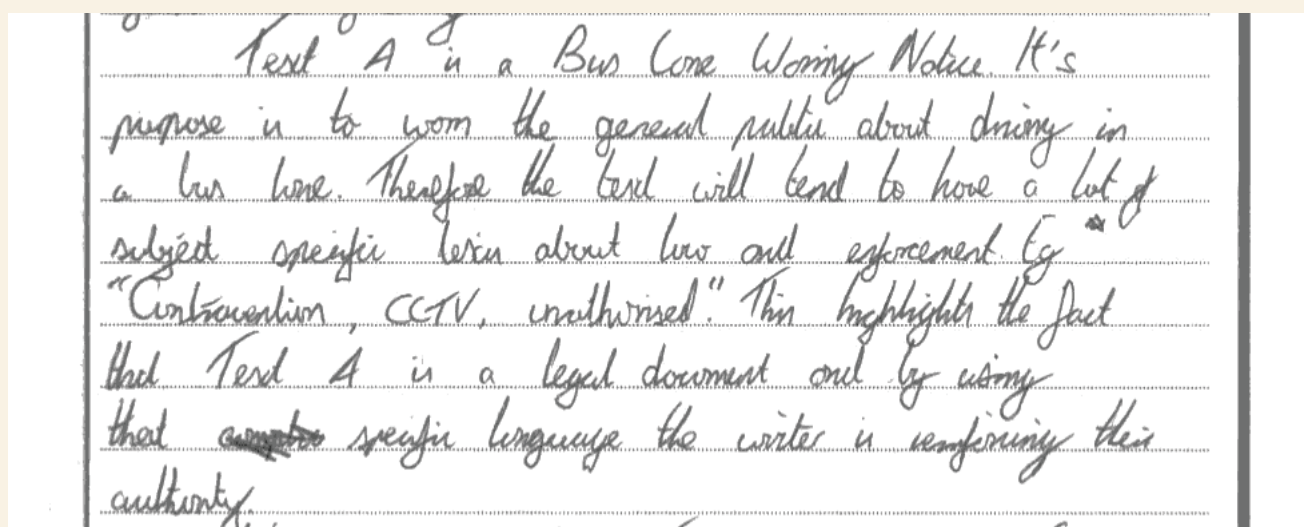 Text A is a Bus Lane Warning Notice. It's
purpose is to warn the general public about driving in
a bus lane. Therefore the text will tend to have a lot of
subject specific lexis about law and enforcement. Eg
"Contravention, CCTV, unathorised". This highlights the fact
that Text A is a legal document and by using
that specific language the writer is reinforcing their
authority.